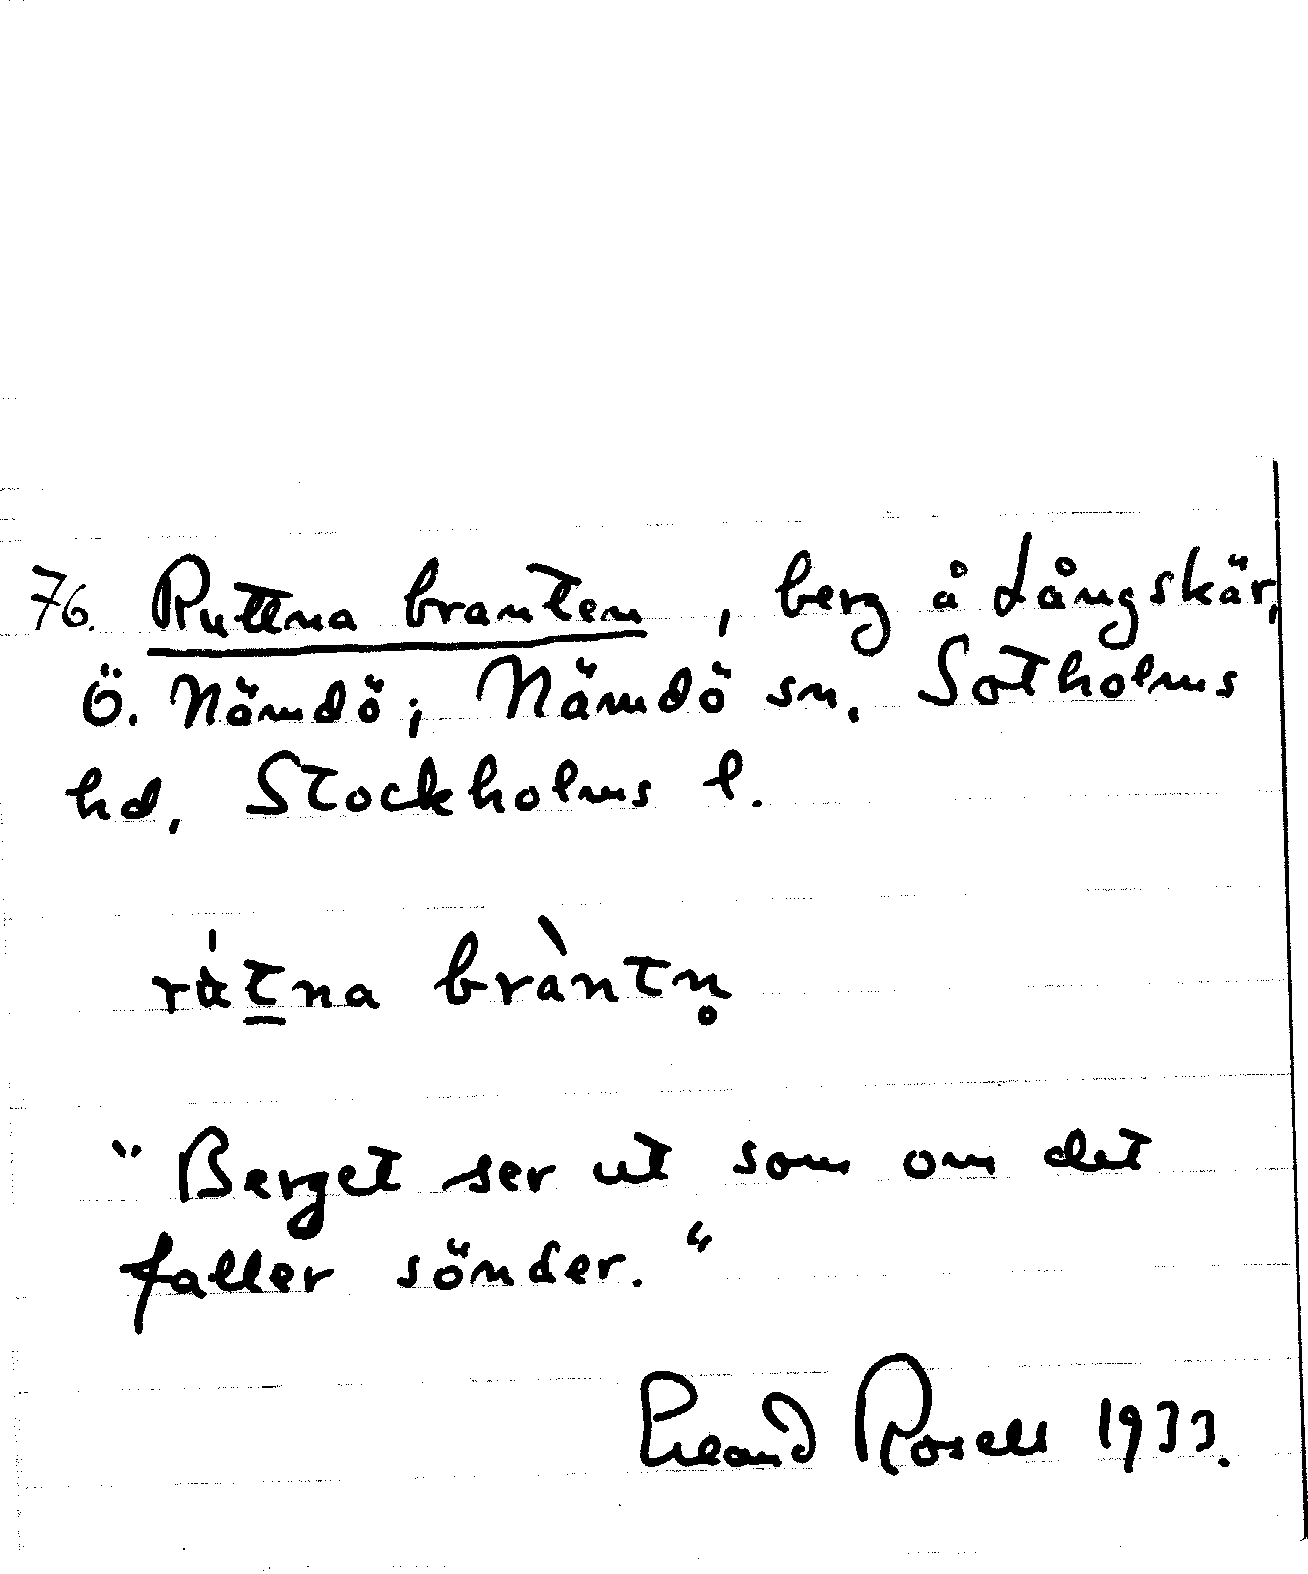 76. Ruttna branten, berg å Långskär,
Ö. Nämdö; Nämdö sn. Sotholms
hd, Stockholms l.
rùt̲na bràntn̥
"Berget ser ut som om det
faller sönder."
Erland Rosell 1933.